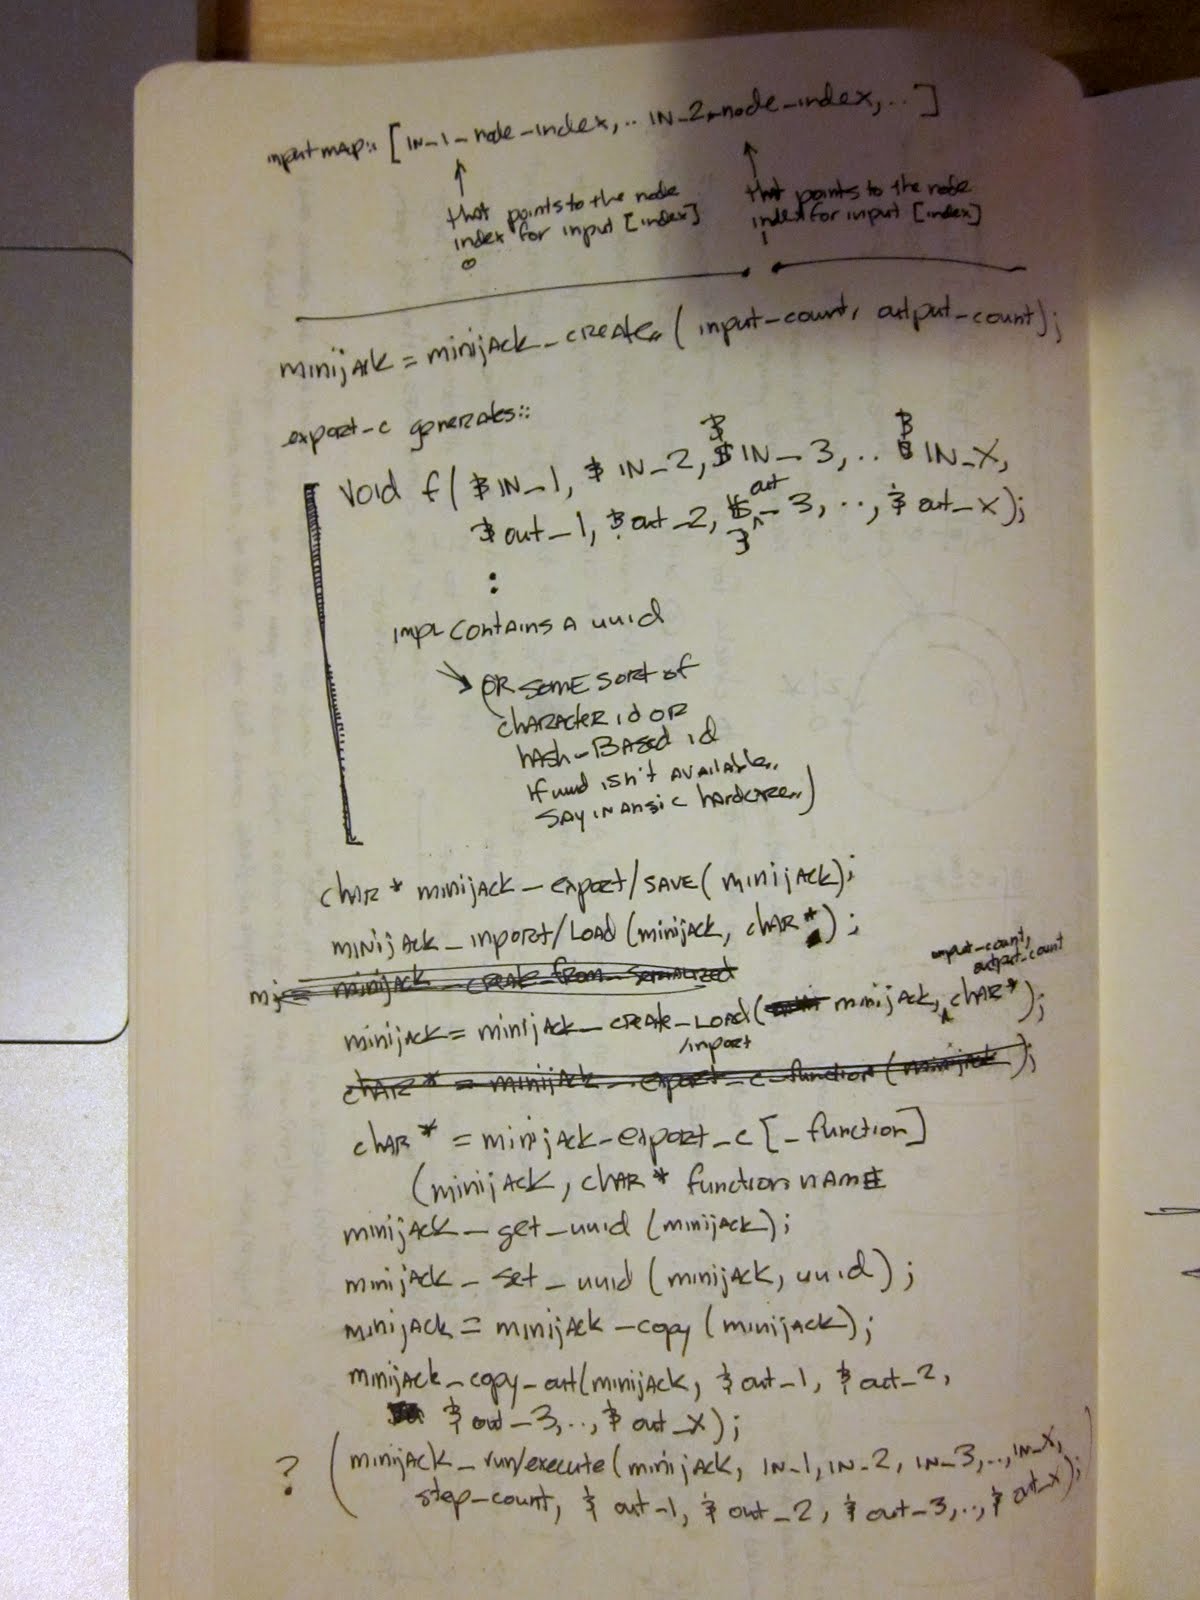 input map:: [IN_1_node_index,.. IN_2_node_index,..]
that points to the node
index for input [index]
0
that points to the node
index for input [index]
1
minijack = minijack_create.. (input_count, output_count);
export_c generates::
void f( $ IN_1, $ IN_2, $ IN_3,.. $ IN_X,
$ out_1, $ out_2, $ out_3, .., $ out_X);
:
impl contains a uuid
(or some sort of
character id or
hash-based id
if uuid isn't available..
say in ansi c hardcore..)
char * minijack_export/save( minijack);
minijack_import/load (minijack, char *);
mj = minijack_create_from_serialized
input_count,
output_count
minijack = minijack_create_load( minijack, char*);
/import
char* = minijack_export_c_function (minijack);
char * = minijack_export_c [_function]
(minijack, char * function name
minijack_get_uuid (minijack);
minijack_set_uuid (minijack, uuid);
minijack = minijack_copy (minijack);
minijack_copy_out(minijack, $ out_1, $ out_2,
$ out_3,.., $ out_X);
? (minijack_run/execute (minijack, IN_1, IN_2, IN_3,.., IN_X,
step_count, $ out_1, $ out_2, $ out_3,.., $ out_X);)